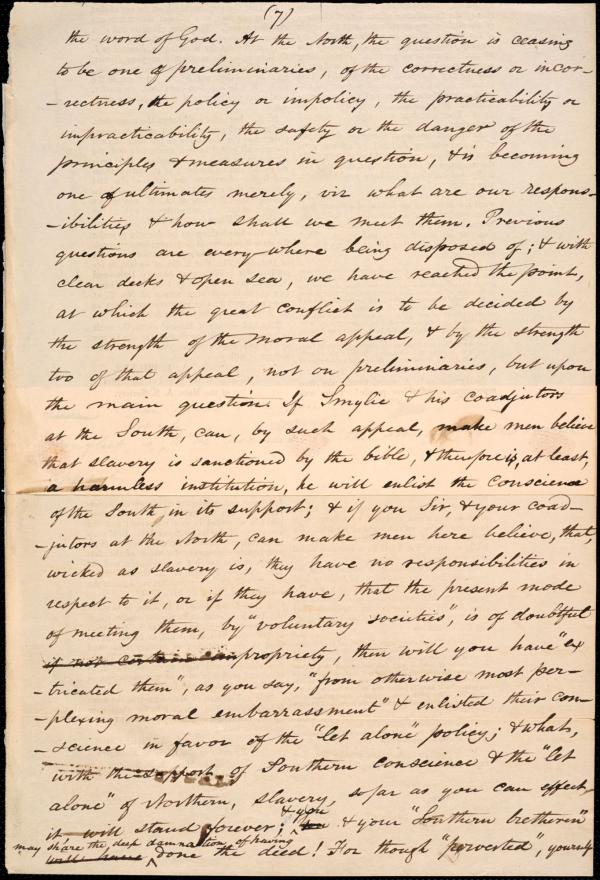 (7)
the word of God. At the North, the question is ceasing
to be one of preliminaries, of the correctness or incor-
-rectness, the policy or impolicy, the practicability or
impracticability, the safety or the danger of the
principles & measures in question, & is becoming
one of ultimates merely, viz what are our respons-
-ibilities & how shall we meet them. Previous
questions are every-where being disposed of; & with
clear decks & open sea, we have reached the point,
at which the great conflict is to be decided by
the strength of the moral appeal, & by the strength
too of that appeal, not on preliminaries, but upon
the main question. If Smylie & his coadjutors
at the South, can, by such appeal, make men believe
that slavery is sanctioned by the bible, & therefore is, at least,
a harmless institution, he will enlist the conscience
of the South in its support; & if you Sir, & your coad-
-jutors at the North, can make men here believe, that,
wicked as slavery is, they have no responsibilities in
respect to it, or if they have, that the present mode
of meeting them, by "voluntary societies", is of doubtful
if not certain impropriety, then will you have "ex
-tricated them", as you say, "from otherwise most per-
-plexing moral embarrassment" & enlisted their con-
-science in favor of the "let alone" policy; & what,
with the support of Southern conscience & the "let
alone" of Northern, slavery, so far as you can effect
it will stand forever; & you & your "Southern bretheren"
may share the deep damnation of having
will have done the deed! For though "perverted", yourself